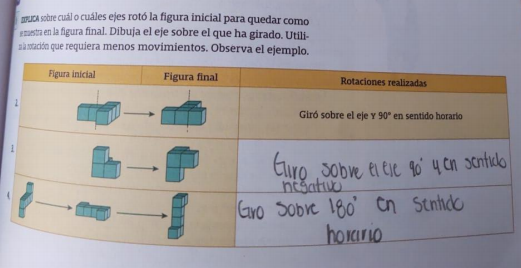 EXPLICA sobre cuál o cuáles ejes rotó la figura inicial para quedar como
se muestra en la figura final. Dibuja el eje sobre el que ha girado. Utili-
za la rotación que requiera menos movimientos. Observa el ejemplo.
Figura inicial Figura final Rotaciones realizadas
Giró sobre el eje Y 90° en sentido horario
Giro sobre el eje 90° y en sentido
negativo
Giro sobre 180° en sentido
horario